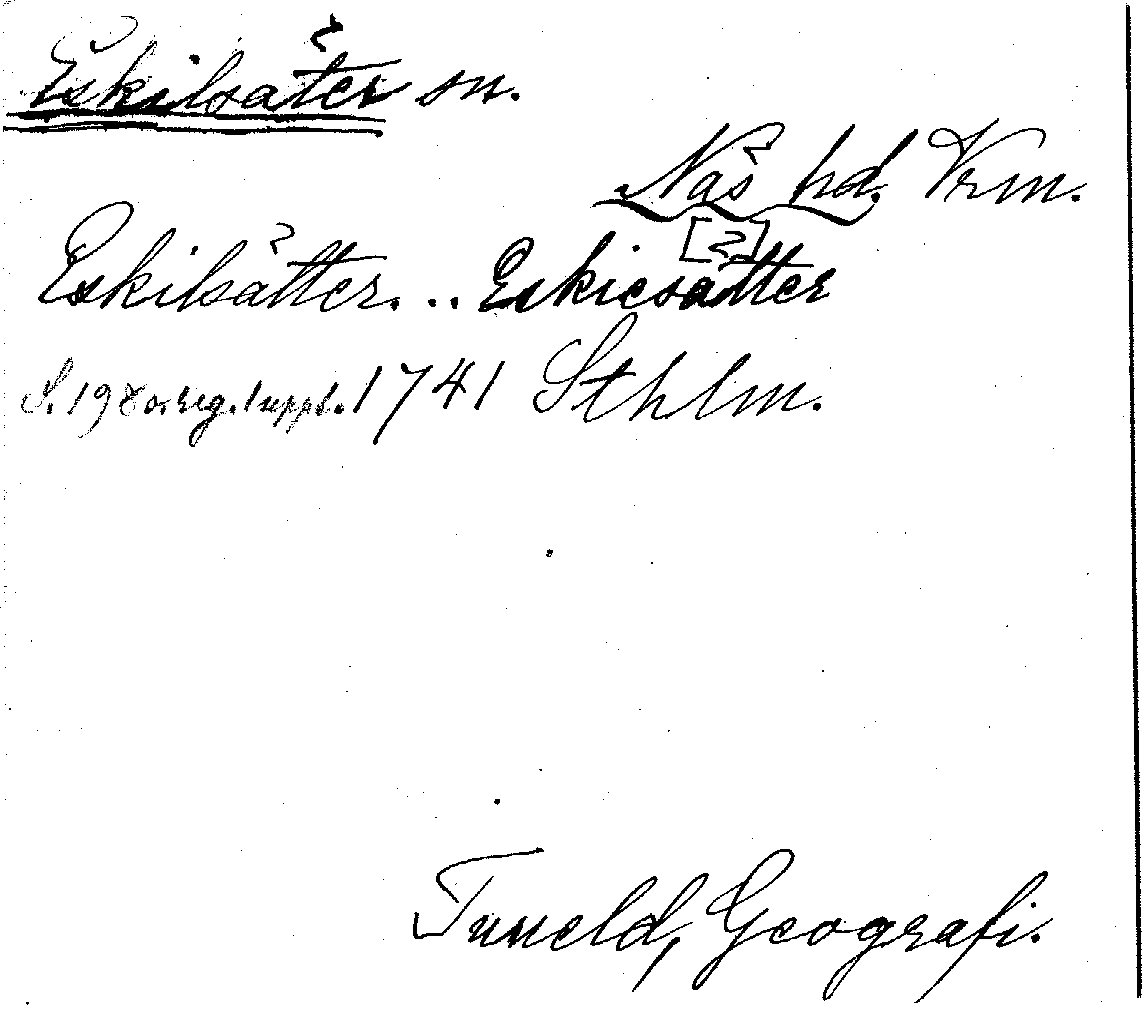 Eskilsäter sn.
Näs hd. Vrm.
[2]
Eskilsätter. .. Eskiesätter
S. 198 o. reg. t suppl. 1741 Sthlm.
Tuneld, Geografi.